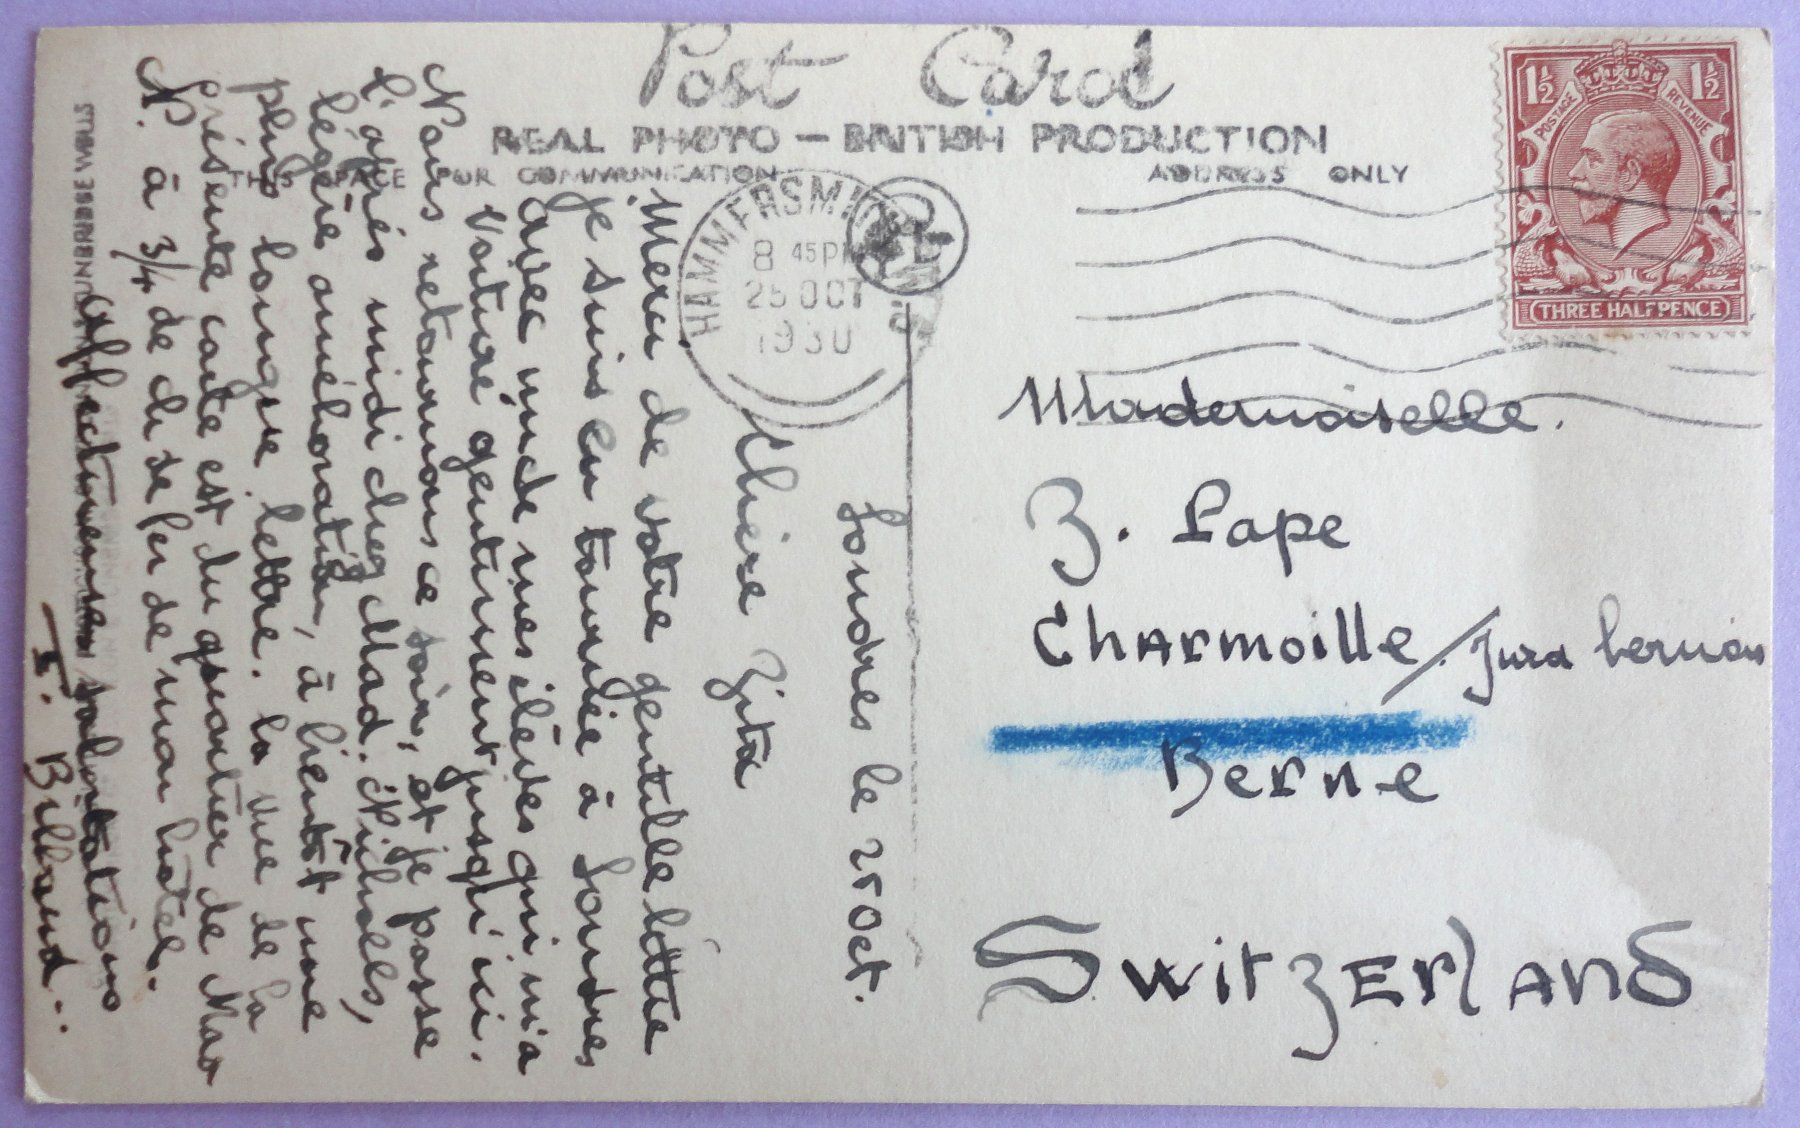 Post Card
REAL PHOTO — BRITISH PRODUCTION
THIS SPACE FOR COMMUNICATION
ADDRESS ONLY
HAMMERSMITH
8 45 PM
25 OCT
1930
1½ 1½
POSTAGE REVENUE
THREE HALFPENCE
Londres le 25 Oct.
Chère Zita
Merci de votre gentille lettre
Je suis en tournée à Londres
avec une de mes élèves qui m'a
voituré gentiment jusqu'ici.
Nous retournons ce soir, et je passe
l'après midi chez Mad. Nicholls,
légère amélioration, à bientôt une
plus longue lettre. la vue de la
présente carte est du quartier de
N. à 3/4 de ch de fer de mon hotel.
Affectueuses salutations
I. Billaud..
Mademoiselle.
Z. Pape
Charmoille / Jura bernois
Berne
Switzerland